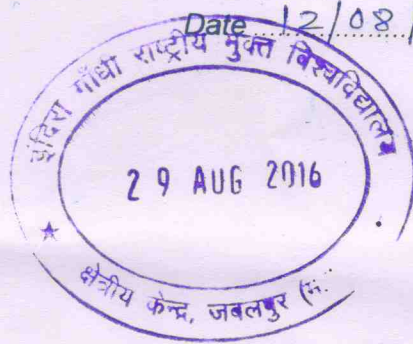 Date 12/08/
इंदिरा गाँधी राष्ट्रीय मुक्त विश्वविद्यालय
29 AUG 2016
★ क्षेत्रीय केन्द्र, जबलपुर (म.